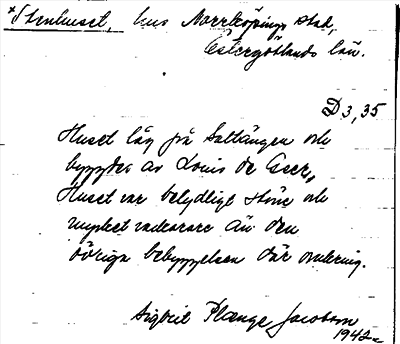 *Stenhuset, hus Norrköpings stad,
Östergötlands län.
D 3, 35
Huset låg på Saltängen och
byggdes av Louis de Geer.
Huset var betydligt större och
mycket vackrare än den
övriga bebyggelsen där omkring.
Sigbrit Plænge Jacobson
1942